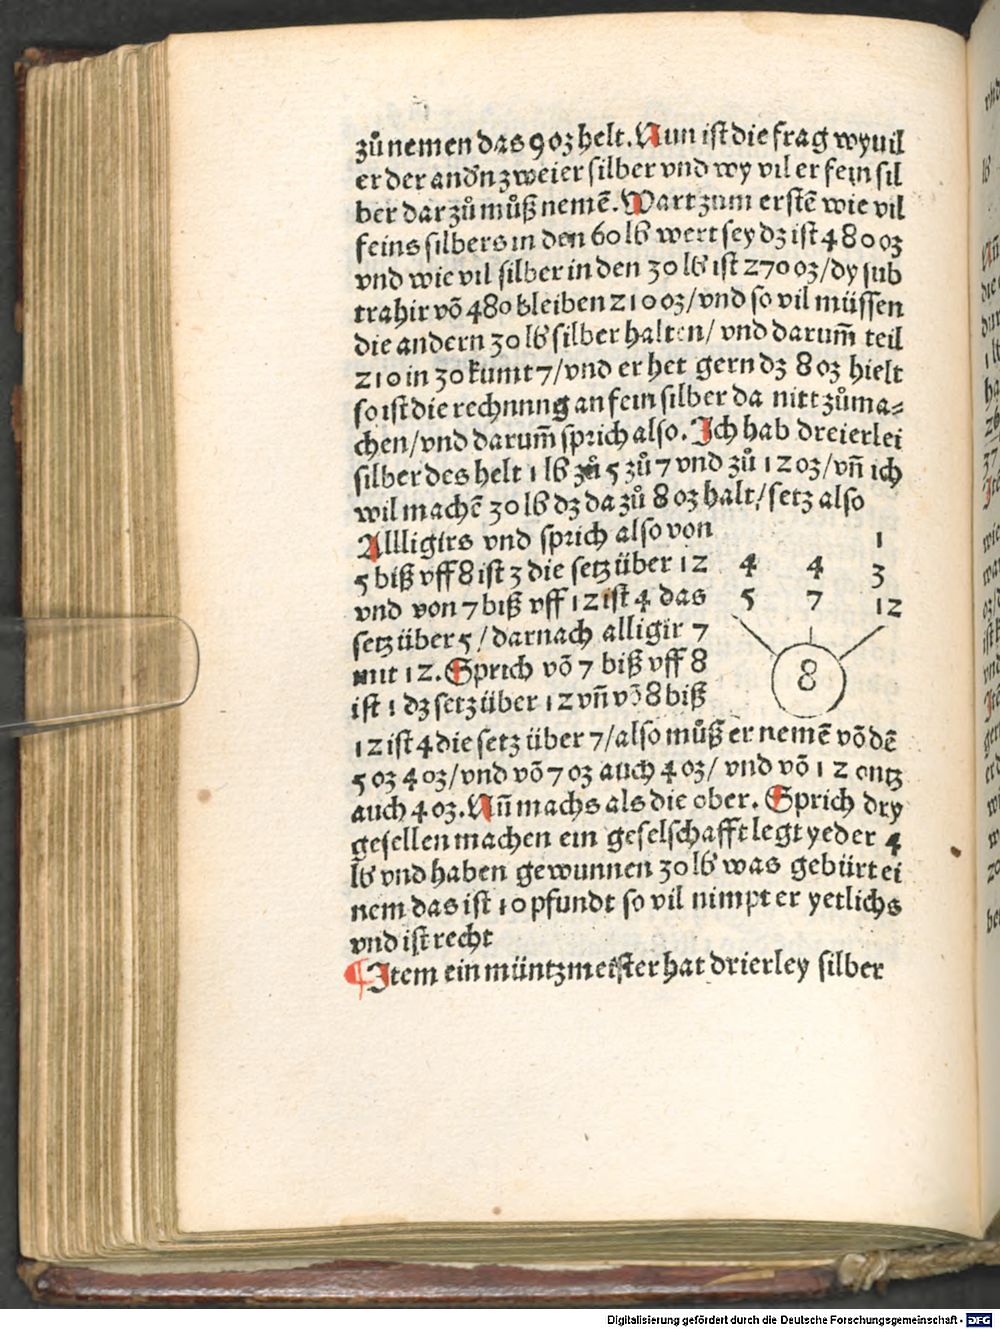 zů nemen das 9 oz helt. Nun ist die frag wy vil
er der andn̄ zweier silber vnd wy vil er fein sil
ber dar zů můß nemē. Wart zum erstē wie vil
feins silbers in den 60 lб wert sey dz ist 480 oz
vnd wie vil silber in den 30 lб ist 270 oz/dy sub
trahir vō 480 bleiben 210 oz/vnd so vil müssen
die andern 30 lб silber halten/ vnd darum̄ teil
210 in 30 kumt 7/vnd er het gern dz 8 oz hielt
so ist die rechnung an fein silber da nitt zů ma⸗
chen/vnd darum̄ sprich also. Ich hab dreierlei
silber des helt 1 lб zů 5 zů 7 vnd zů 12 oz/vn̄ ich
wil machē 30 lб dz da zů 8 oz halt/setz also
Allligirs vnd sprich also von
5 biß vff 8 ist 3 die setz über 12
vnd von 7 biß vff 12 ist 4 das
setz über 5/darnach alligir 7
mit 12. Sprich vō 7 biß vff 8
ist 1 dz setz über 12 vn̄ vō 8 biß
1
4 4 3
5 7 12
8
12 ist 4 die setz über 7/also můß er nemē vō dē
5 oz 4 oz/vnd vō 7 oz auch 4 oz/ vnd vō 12 ontz
auch 4 oz. Nun̄ machs als die ober. Sprich dry
gesellen machen ein geselschafft legt yeder 4
lб vnd haben gewunnen 30 lб was gebürt ei
nem das ist 10 pfundt so vil nimpt er yetlichs
vnd ist recht
¶ Item ein müntzmeister hat drierley silber
Digitalisierung gefördert durch die Deutsche Forschungsgemeinschaft - DFG